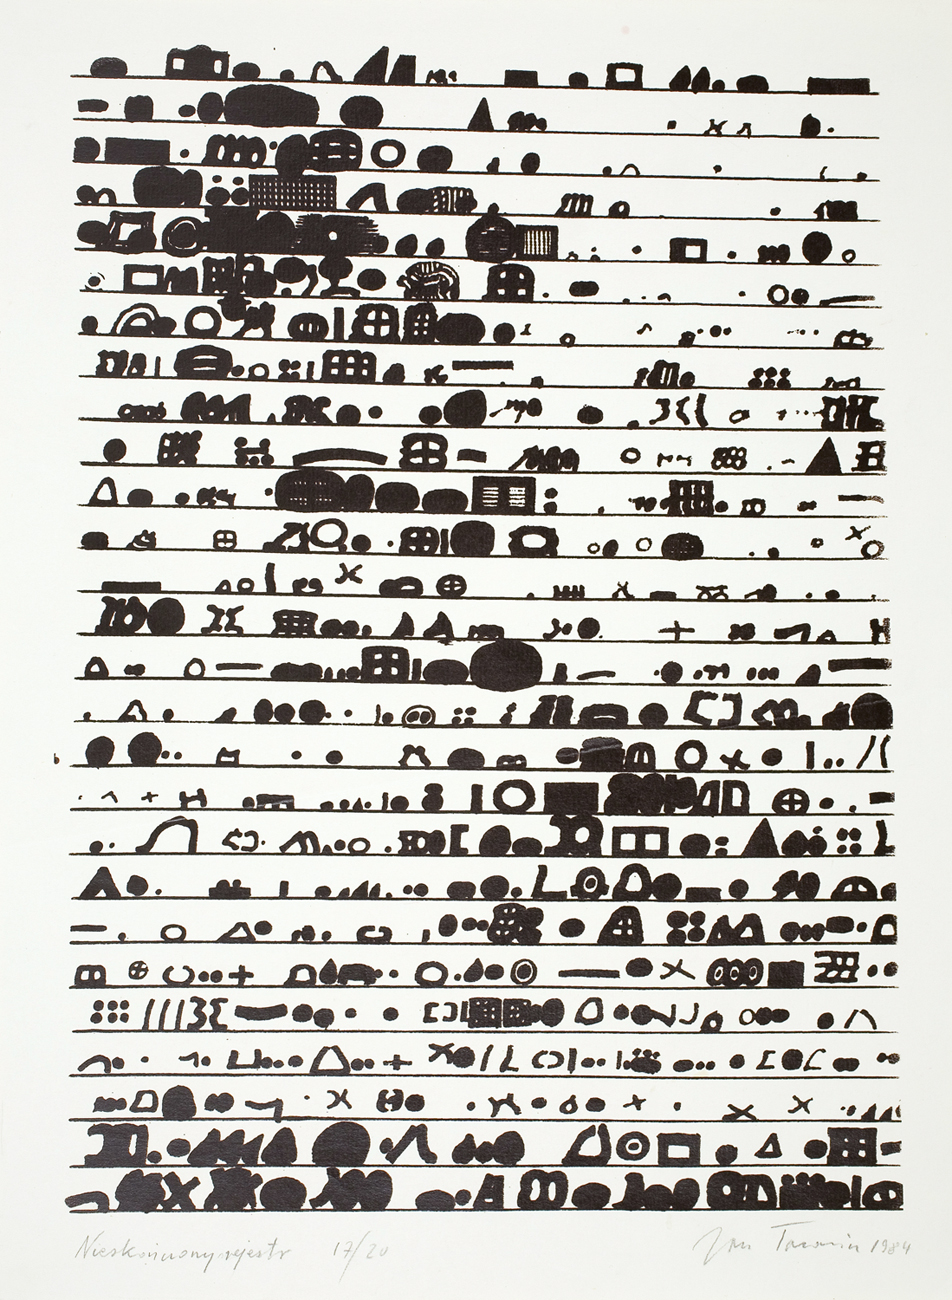 Nieskończony rejestr 17/20 Jan Tarasin 1984